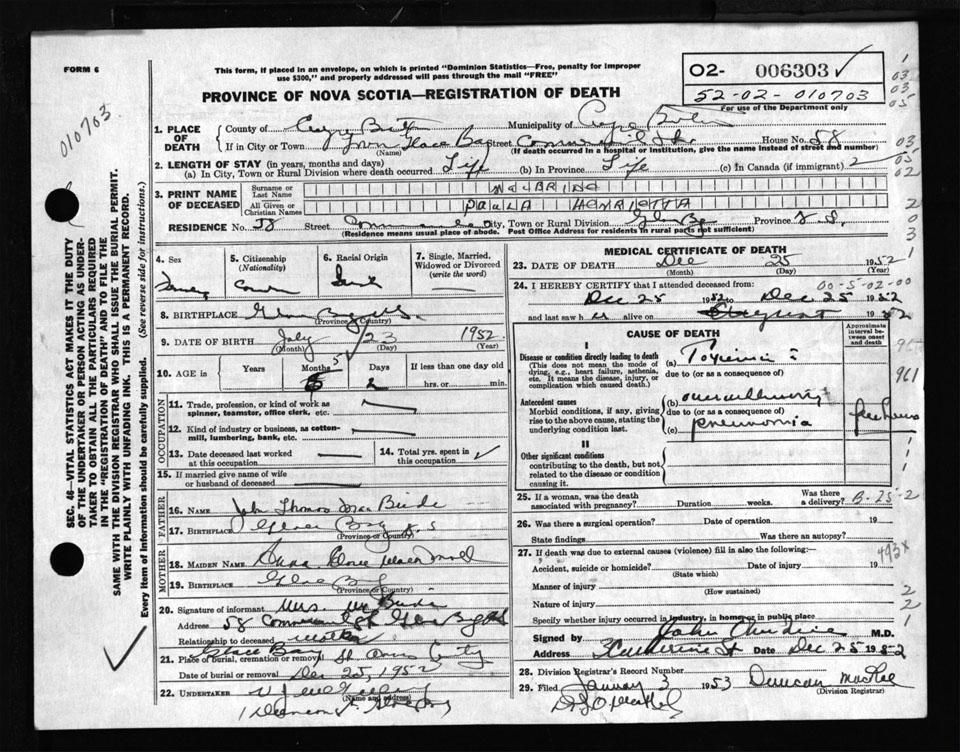 FORM 6
This form, if placed in an envelope, on which is printed "Dominion Statistics—Free, penalty for improper
use $300," and properly addressed will pass through the mail "FREE"
02- 006303 ✓
52-02-010703
For use of the Department only
010703
PROVINCE OF NOVA SCOTIA—REGISTRATION OF DEATH
1. PLACE OF DEATH
County of Cape Breton Municipality of Cape Breton
If in City or Town Town Glace Bay Street Commercial St. House No. 58
(Name) (If death occurred in a hospital or institution, give the name instead of street and number)
2. LENGTH OF STAY (in years, months and days)
(a) In City, Town or Rural Division where death occurred Life (b) In Province Life (c) In Canada (if immigrant)
3. PRINT NAME OF DECEASED
Surname or Last Name MacBRIDE
All Given or Christian Names PAULA HENRIETTA
RESIDENCE No. 58 Street City, Town or Rural Division Glace Bay Province N.S.
(Residence means usual place of abode. Post Office Address for residents in rural parts not sufficient)
4. Sex
5. Citizenship (Nationality)
6. Racial Origin
7. Single, Married, Widowed or Divorced (write the word)
8. BIRTHPLACE Glace Bay N.S.
(Province or Country)
9. DATE OF BIRTH July 23 1952
(Month) (Day) (Year)
10. AGE in Years Months 5 Days 2 If less than one day old
hrs. or min.
OCCUPATION
11. Trade, profession, or kind of work as
spinner, teamster, office clerk, etc.
12. Kind of industry or business, as cotton-
mill, lumbering, bank, etc.
13. Date deceased last worked
at this occupation
14. Total yrs. spent in
this occupation
15. If married give name of wife
or husband of deceased
FATHER
16. Name John Thomas MacBride
17. Birthplace Glace Bay N.S
(Province or Country)
MOTHER
18. MAIDEN NAME Anna MacDonald
19. BIRTHPLACE Glace Bay
(Province or Country)
20. Signature of informant Mrs. McBride
Address 58 Commercial St Glace Bay NS
Relationship to deceased Mother
21. Place of burial, cremation or removal Glace Bay St Anns Cemetery
Date of burial or removal Dec 25, 1952
22. UNDERTAKER
(Name and address)
MEDICAL CERTIFICATE OF DEATH
23. DATE OF DEATH Dec 25 1952
(Month) (Day) (Year)
00-5-02-00
24. I HEREBY CERTIFY that I attended deceased from:
Dec 25 1952 to Dec 25 1952
and last saw h er alive on August 1952
CAUSE OF DEATH
Approximate interval between onset and death
I
Disease or condition directly leading to death
(This does not mean the mode of dying, e.g., heart failure, asthenia, etc. It means the disease, injury, or complication which caused death.)
(a) Toxemia
due to (or as a consequence of)
Antecedent causes
Morbid conditions, if any, giving rise to the above cause, stating the underlying condition last.
(b) overwhelming
due to (or as a consequence of)
(c) pneumonia few hours
II
Other significant conditions
contributing to the death, but not related to the disease or condition causing it
25. If a woman, was the death associated with pregnancy? Duration weeks. Was there a delivery? B-25-2
26. Was there a surgical operation? Date of operation 19
State findings Was there an autopsy?
27. If death was due to external causes (violence) fill in also the following:—
Accident, suicide or homicide? Date of injury 19
(State which)
493X
Manner of injury
(How sustained)
Nature of injury
Specify whether injury occurred in industry, in home or in public place
Signed by John M.D.
Address Katherine St Date Dec 25 1952
28. Division Registrar's Record Number
29. Filed January 3 1953 Duncan MacRae
(Division Registrar)
SEC. 46—VITAL STATISTICS ACT MAKES IT THE DUTY
OF THE UNDERTAKER OR PERSON ACTING AS UNDER-
TAKER TO OBTAIN ALL THE PARTICULARS REQUIRED
IN THE "REGISTRATION OF DEATH" AND TO FILE THE
SAME WITH THE DIVISION REGISTRAR WHO SHALL ISSUE THE BURIAL PERMIT.
WRITE PLAINLY WITH UNFADING INK. THIS IS A PERMANENT RECORD.
Every item of information should be carefully supplied. (See reverse side for instructions.)